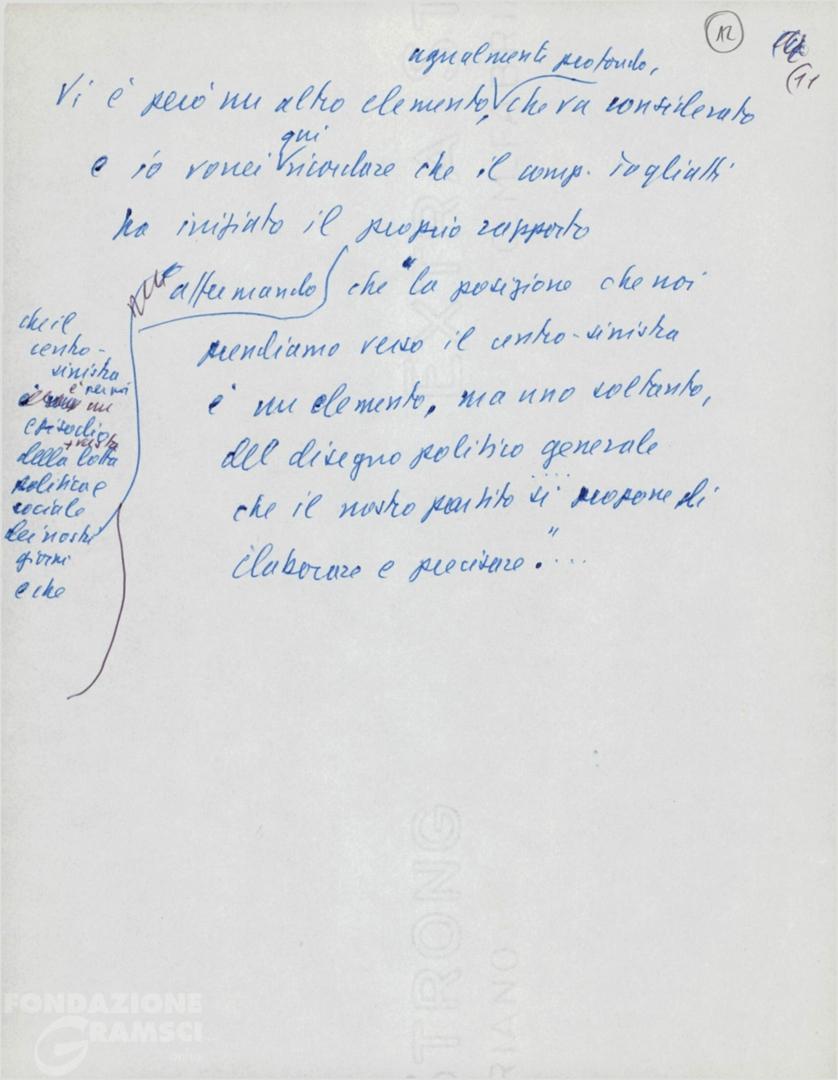 12
(11
ugualmente profondo,
Vi è però un altro elemento, che va considerato
qui
e io vorrei ricordare che il comp. Togliatti
ha iniziato il proprio rapporto
affermando che "la posizione che noi
prendiamo verso il centro-sinistra
è un elemento, ma uno soltanto,
del disegno politico generale
che il nostro partito si propone di
elaborare e precisare." ...
che il
centro-
sinistra
è per noi
un
episodio
della lotta
politica e
sociale
dei nostri
giorni
e che
EXTRA ST
STRONG
FONDAZIONE
GRAMSCI